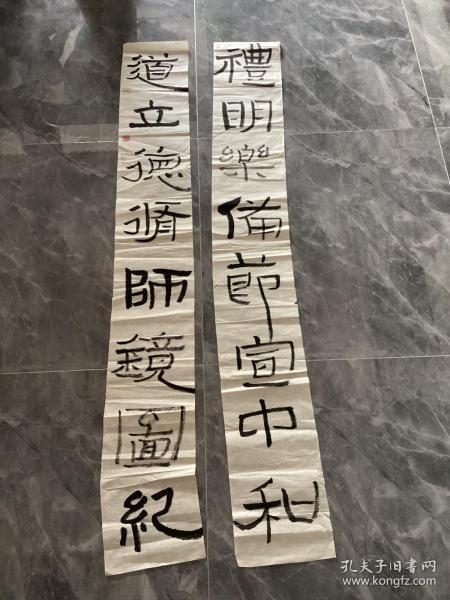 禮明樂備節宣中和
道立德脩師鏡圖紀
孔夫子旧书网
www.kongfz.com